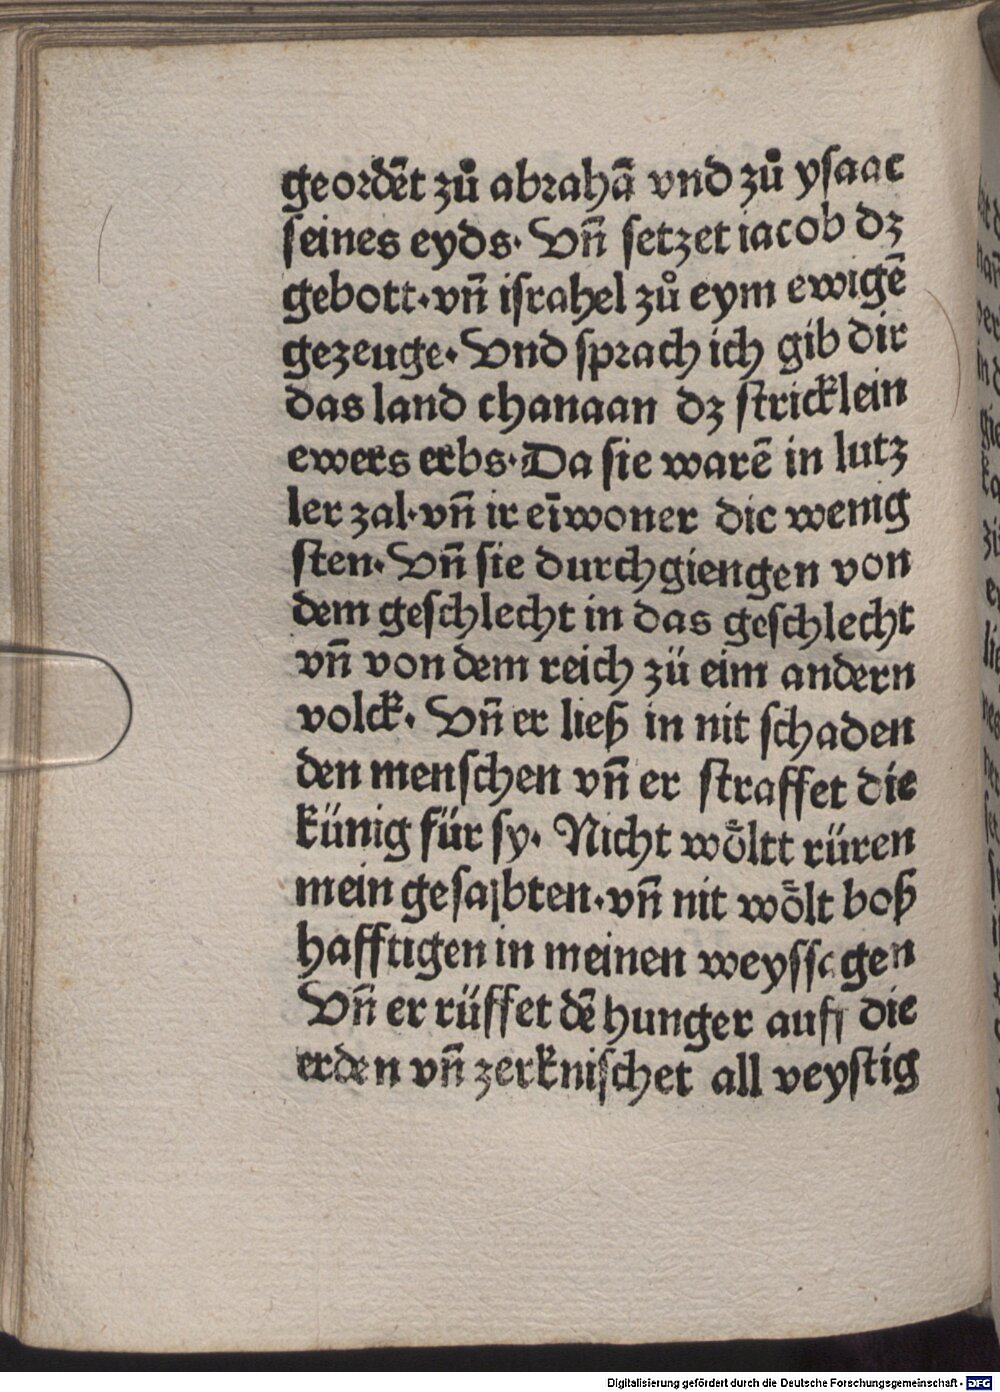 geordēt zů abrahā vnd zů ysaac
seines eyds· Vn̄ setzet iacob dz
gebott·vn̄ israhel zů eym ewigē
gezeuge· Vnd sprach ich gib dir
das land chanaan dz stricklein
ewers erbs·Da sie warē in lutz
ler zal·vn̄ ir eīwoner die wenig
sten·Vn̄ sie durchgiengen von
dem geschlecht in das geschlecht
vn̄ von dem reich zü eim andern
volck· Vn̄ er ließ in nit schaden
den menschen vn̄ er straffet die
künig für sy· Nicht wöltt rüren
mein gesalbten·vn̄ nit wölt boß
hafftigen in meinen weyssagen
Vn̄ er rüffet dē hunger auff die
erden vn̄ zerknischet all veystig
Digitalisierung gefördert durch die Deutsche Forschungsgemeinschaft - DFG